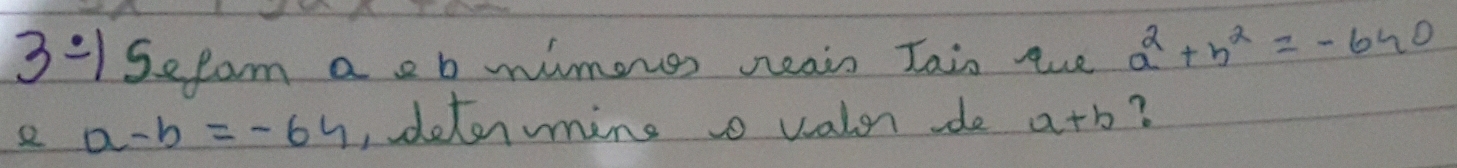 3º) Sejam a e b números reais Tais que a² + b² = -640
e a-b = -64, determine o valor de a+b?